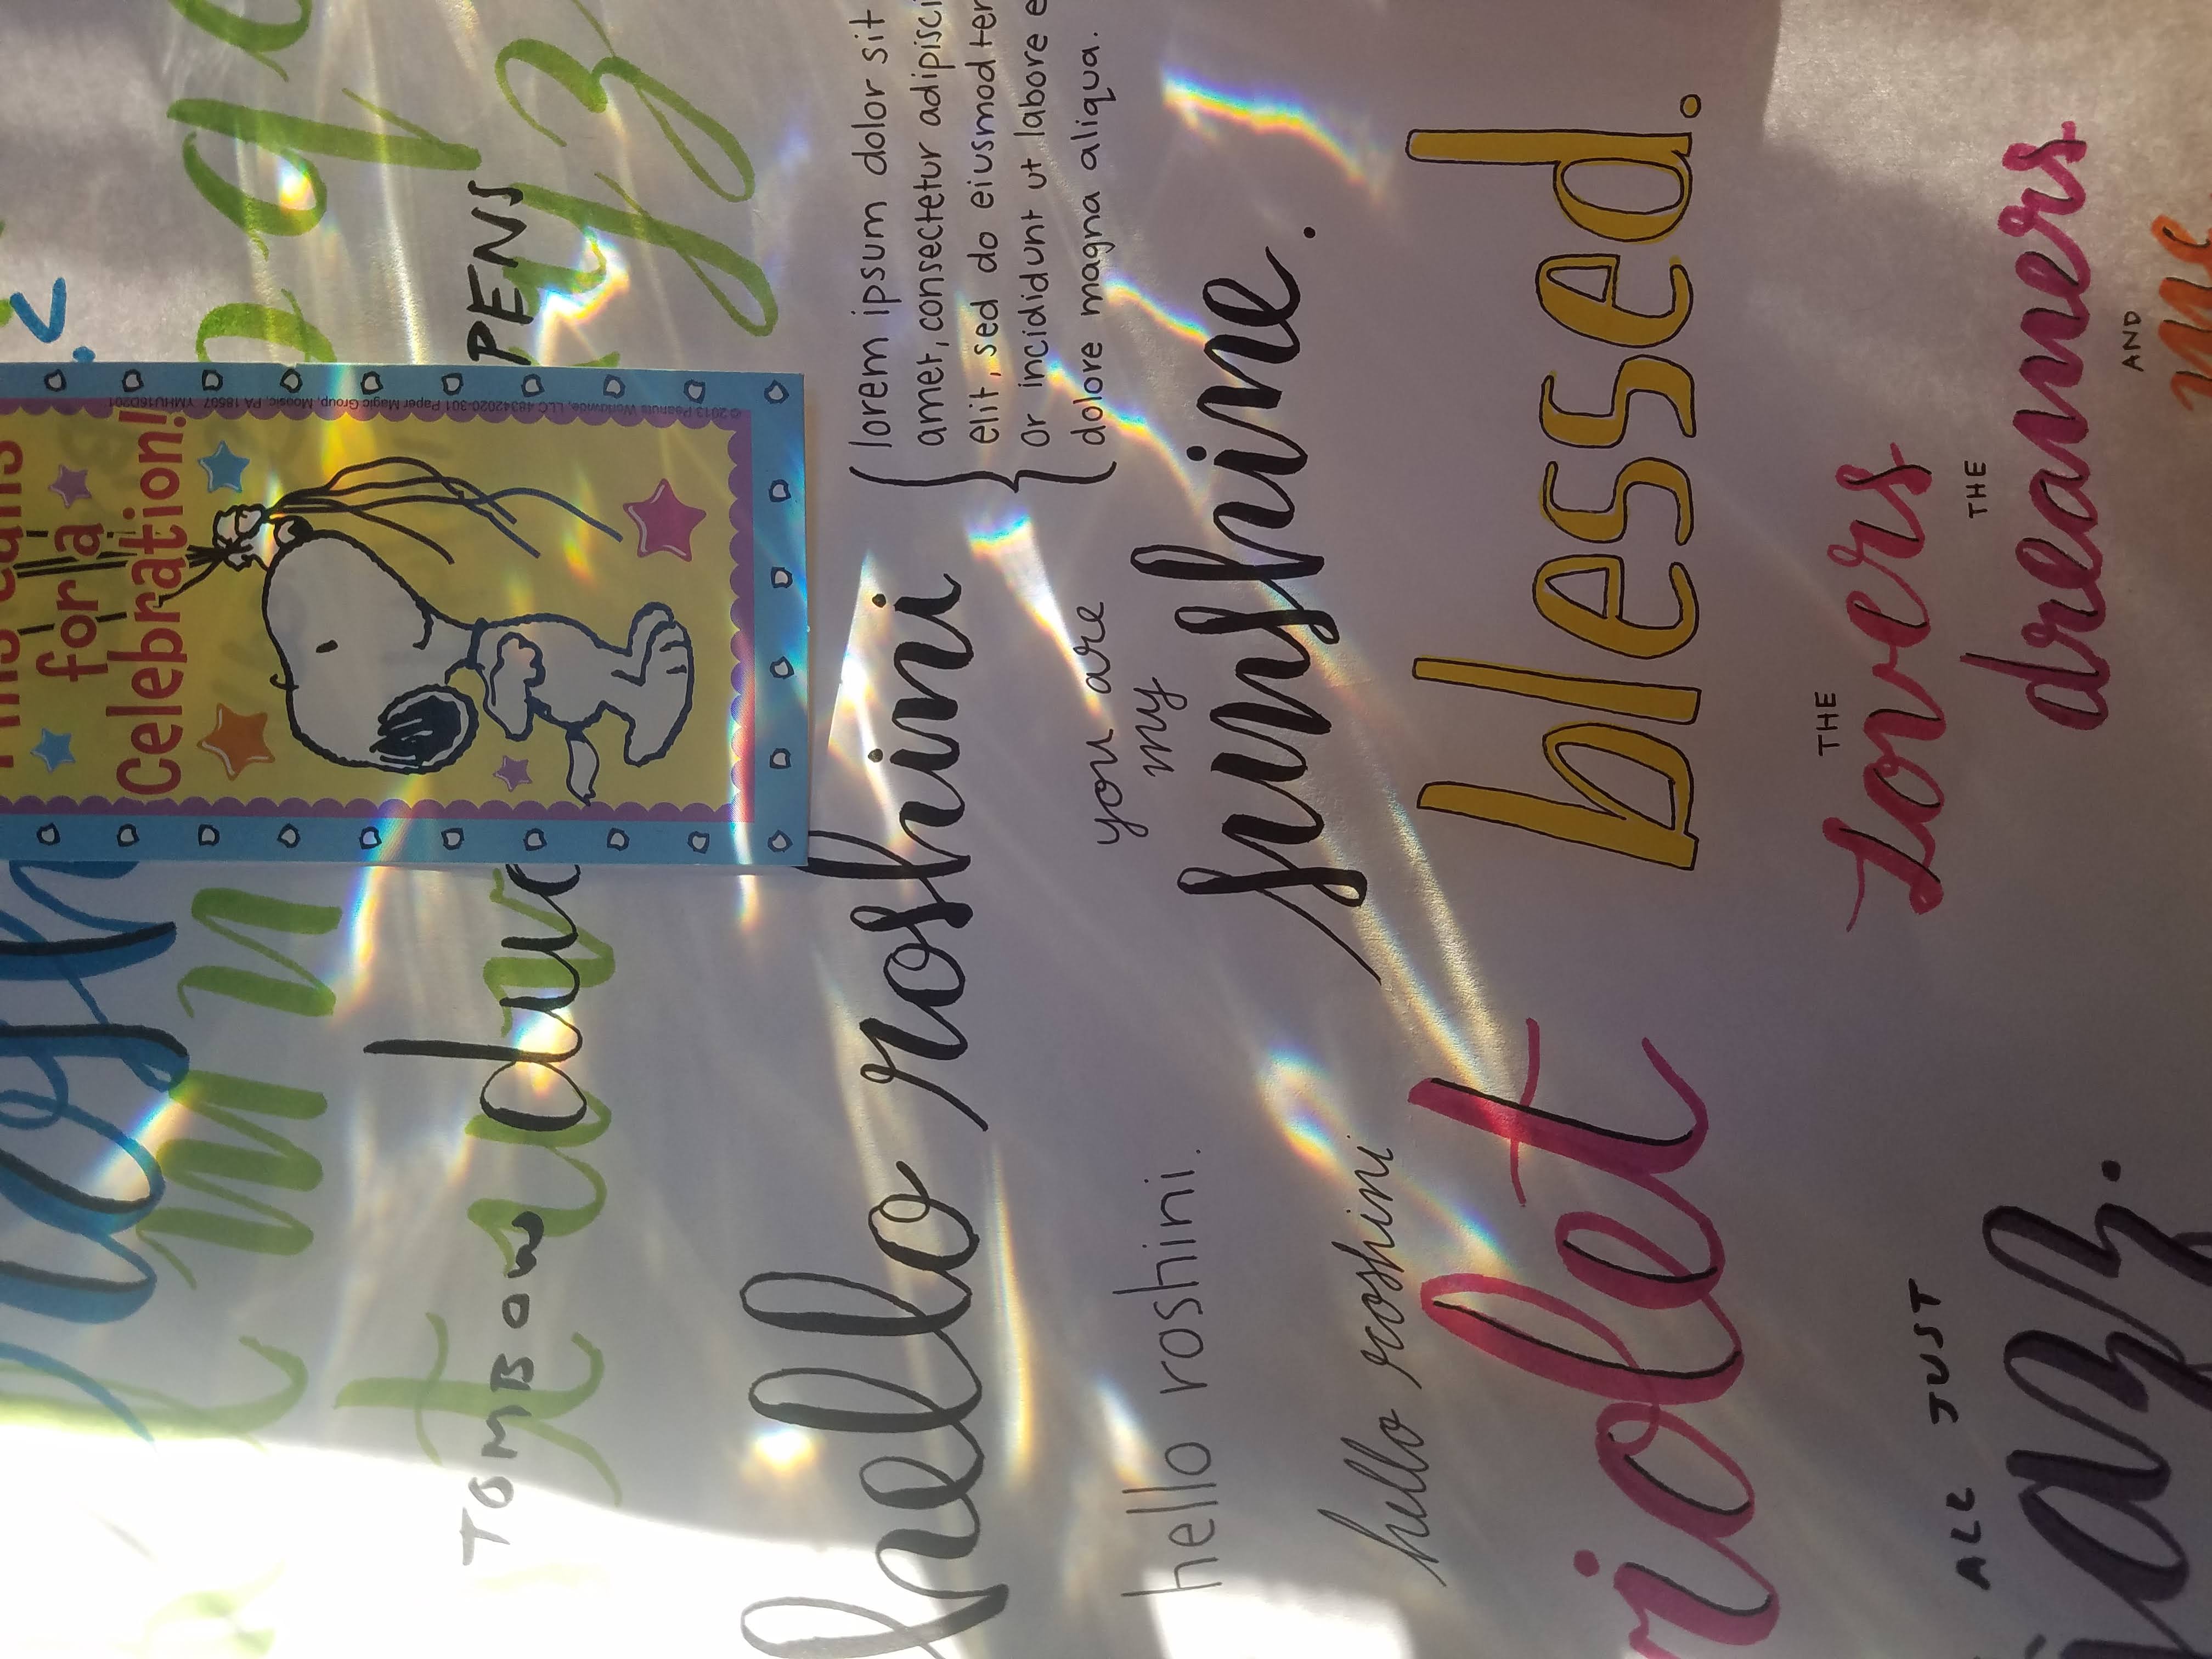 for a
Celebration!
© 2013 Peanuts Worldwide, LLC 48342020-301 Paper Magic Group, Moosic, PA 18507
l m n
p q
TOMBOW duo PENS
t u v
y z
hello roshini
lorem ipsum dolor sit
amet, consectetur adipisci
elit, sed do eiusmod ter
or incididunt ut labore e
dolore magna aliqua.
you are
my
sunshine.
hello roshini.
hello roshini
violet
blessed.
THE
Lovers
THE
dreamers
AND
me
ALL JUST
jazz.